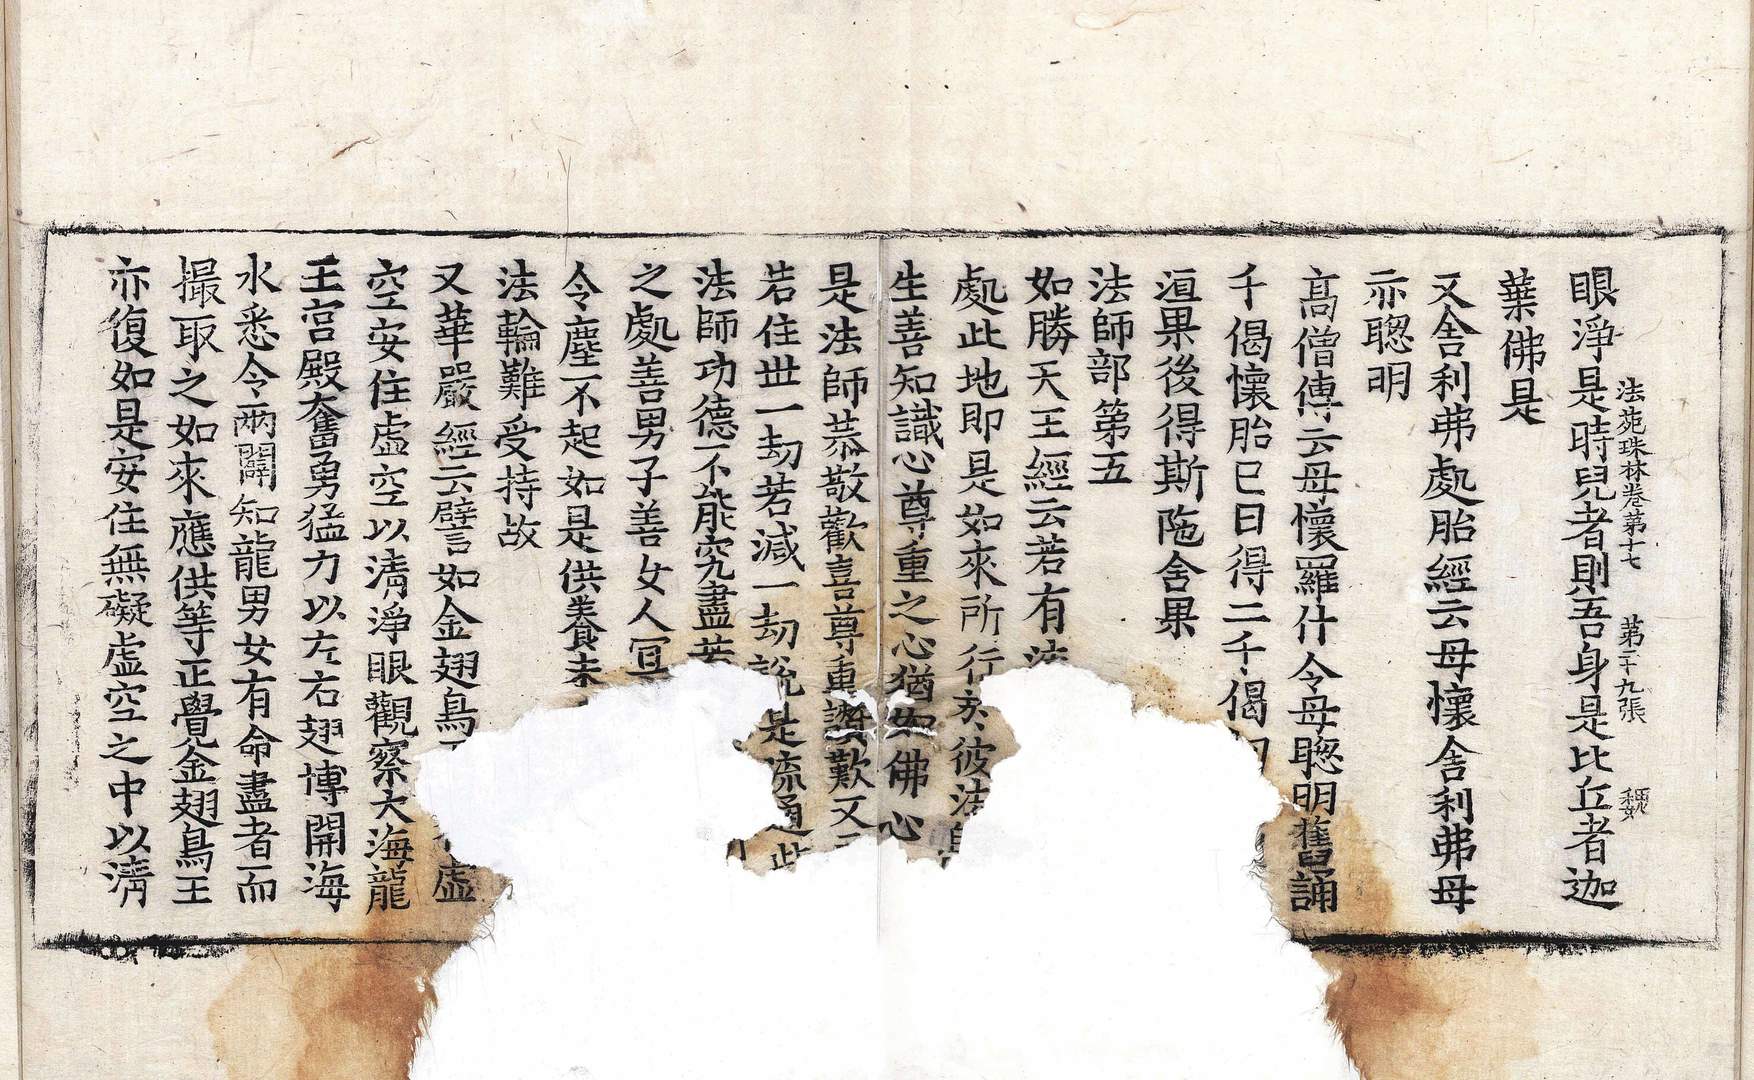 眼淨是時兒者則吾身是比丘者迦
法苑珠林卷第十七　第二十九張
葉佛是
又舍利弗處胎經云母懷舍利弗母
亦聰明
高僧傳云母懷羅什令母聰明舊誦
千偈懷胎已日得二千偈
洹果後得斯陁舍果
法師部第五
如勝天王經云若有法
處此地即是如來所行
彼法師
生善知識心尊重之心猶如佛心
是法師恭敬歡喜尊重讚歎又
若住世一劫若減一劫說是流通此
法師功德不能究盡若
之處善男子善女人
令塵不起如是供養未
法輪難受持故
又華嚴經云譬如金翅鳥
虛
空安住虛空以清淨眼觀察大海龍
王宮殿奮勇猛力以左右翅博開海
水悉令兩闢知龍男女有命盡者而
撮取之如來應供等正覺金翅鳥王
亦復如是安住無礙虛空之中以清